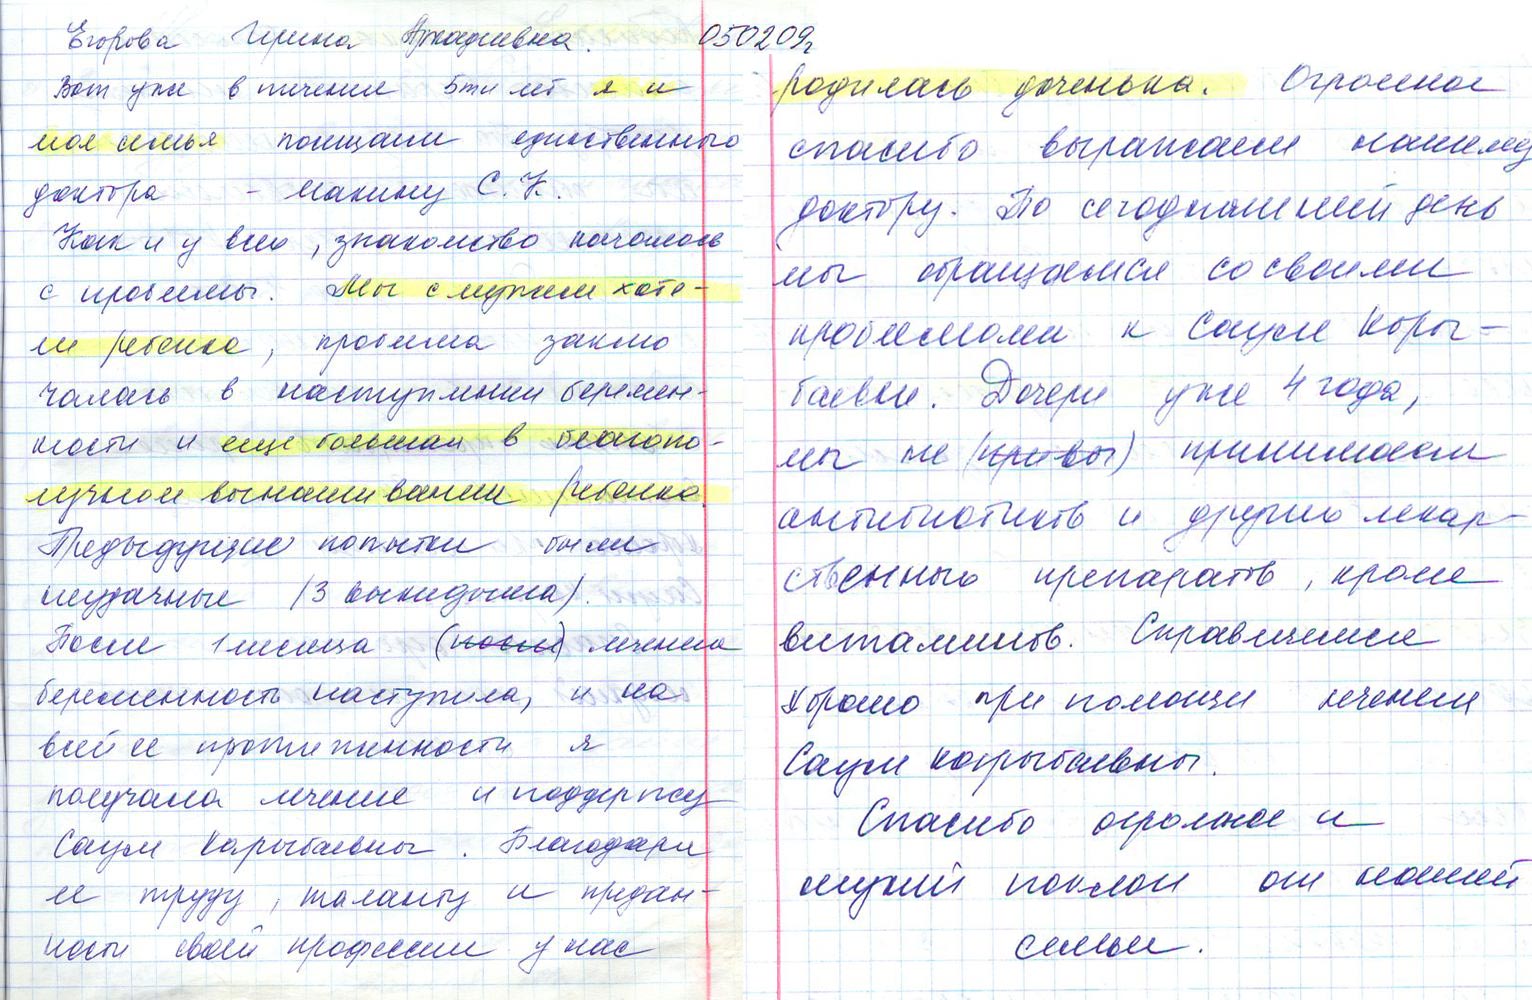 Егорова Ирина Аркадиевна. 050209г
Вот уже в течение 5ти лет я и
моя семья посещаем единственного
доктора - Макину С. К.
Как и у всех, знакомство началось
с проблемы. Мы с мужем хоте-
ли ребенка, проблема заклю
чалась в наступлении беремен-
ности и еще большая в благопо-
лучном вынашивании ребенка.
Предыдущие попытки были
неудачные /3 выкидыша/.
После 1 месяца (после) лечения
беременность наступила, и на
всей ее протяженности я
получала лечение и поддержку
Сауле Карыбаевны. Благодаря
ее труду, таланту и предан-
ности своей профессии у нас
родилась доченька. Огромное
спасибо выражаем нашему
доктору. По сегодняшний день
мы обращаемся со своими
проблемами к Сауле Кары-
баевне. Дочери уже 4 года,
мы не (привы) принимаем
антибиотиков и других лекар-
ственных препаратов, кроме
витаминов. Справляемся
хорошо при помощи лечения
Сауле Карыбаевны.
Спасибо огромное и
низкий поклон от нашей
семьи.